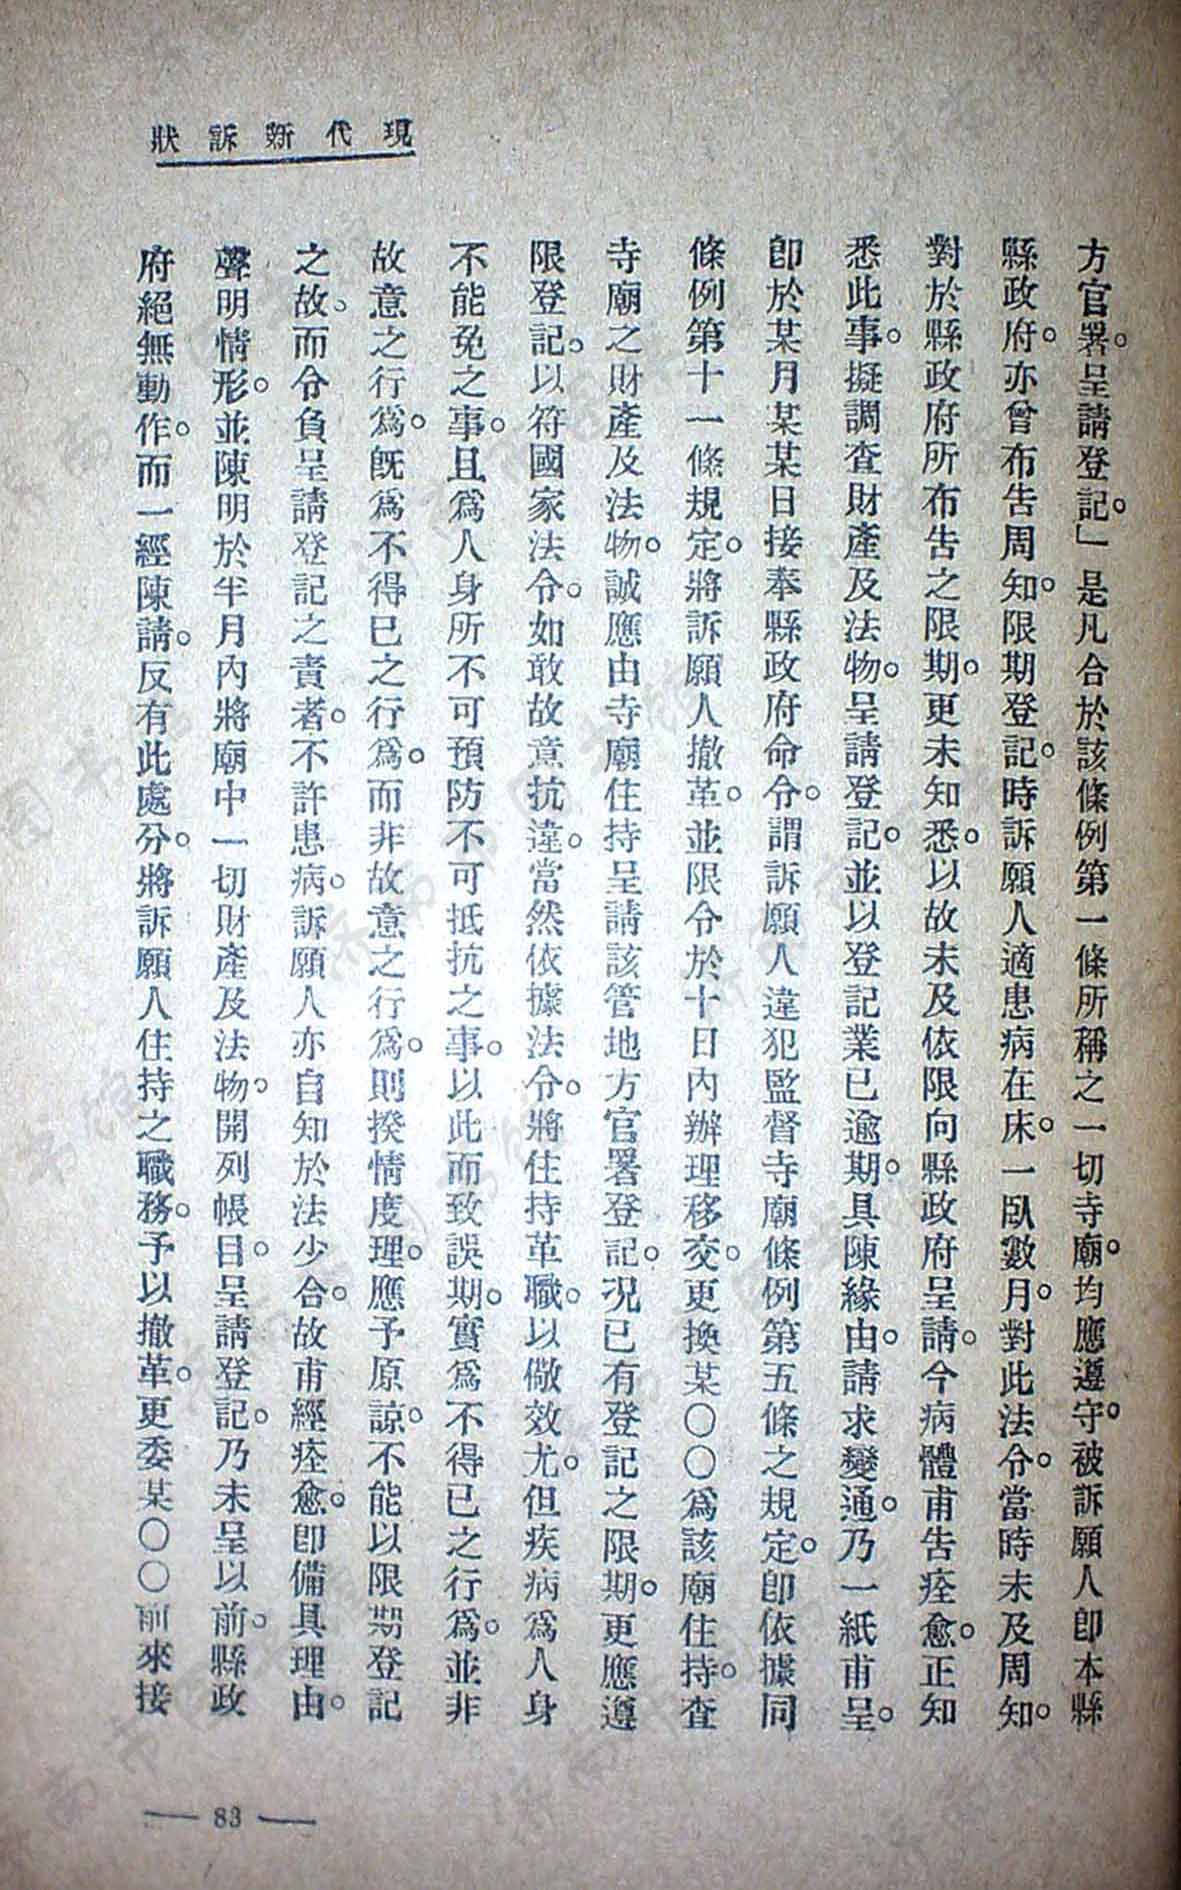 現代新訴狀
方官署。呈請登記。」是凡合於該條例第一條所稱之一切寺廟。均應遵守。被訴願人卽本縣
縣政府。亦曾布告周知。限期登記。時訴願人適患病在床。一臥數月。對此法令。當時未及周知。
對於縣政府所布告之限期。更未知悉。以故未及依限向縣政府呈請。今病體甫告痊愈。正知
悉此事。擬調查財產及法物。呈請登記。並以登記業已逾期。具陳緣由。請求變通。乃一紙甫呈。
卽於某月某某日接奉縣政府命令。謂訴願人違犯監督寺廟條例第五條之規定。卽依據同
條例第十一條規定。將訴願人撤革。並限令於十日內辦理移交。更換某〇〇爲該廟住持。查
寺廟之財產及法物。誠應由寺廟住持呈請該管地方官署登記。况已有登記之限期。更應遵
限登記。以符國家法令。如敢故意抗違。當然依據法令。將住持革職。以儆效尤。但疾病爲人身
不能免之事。且爲人身所不可預防不可抵抗之事。以此而致誤期。實爲不得已之行爲。並非
故意之行爲。旣爲不得已之行爲。而非故意之行爲。則揆情度理。應予原諒。不能以限期登記
之故。而令負呈請登記之責者。不許患病。訴願人亦自知於法少合。故甫經痊愈。卽備具理由。
聲明情形。並陳明於半月內將廟中一切財產及法物。開列帳目。呈請登記。乃未呈以前。縣政
府絕無動作。而一經陳請。反有此處分。將訴願人住持之職務。予以撤革。更委某〇〇前來接
— 83 —